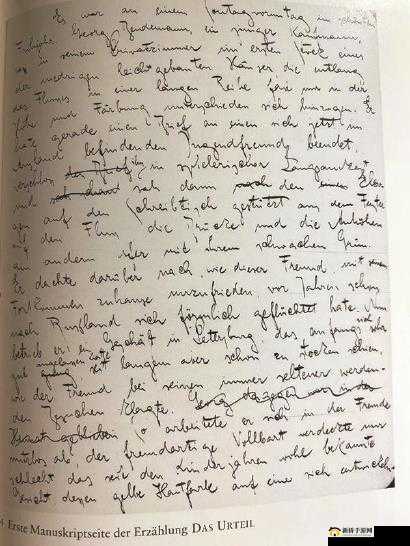 Es war an einem Sontagvormittag im schönsten
Frühjahr Georg Bendemann, ein junger Kaufmann,
in seinem Privatzimmer im ersten Stock eines
der niedrigen leichtgebauten Häuser die entlang
des Flusses in einer langen Reihe fast nur in der
Höhe und Färbung unterschieden sich hinzogen. Er
hatte gerade einen Brief an einen sich jetzt im
Ausland befindenden Jugendfreund beendet,
verschloss den Brief ihn in spielerischer Langsamkeit
und sah dann den Elbo
gen auf den Schreibtisch gestützt aus dem Fenster
auf den Fluss, die Brücke und die Anhöhen
am andern Ufer mit ihrem schwachen Grün.
Er dachte darüber nach, wie dieser Freund, mit seinem
Fortkommen zuhause unzufrieden, vor Jahren schon
nach Russland sich förmlich geflüchtet hatte. Nun
betrieb er ein Geschäft in Petersburg, das anfangs sich sehr
gut angelassen hatte seit langem aber schon zu stocken schien,
wie der Freund bei seinen immer seltener werden-
den Besuchen klagte. Georg dagegen war in der
Heimat So arbeitete er sich in der Fremde
nutzlos ab, der fremdartige Vollbart verdeckte nur
schlecht das seit den Kinderjahren wohl bekannte
Gesicht dessen gelbe Hautfarbe auf eine sich entwickeln-
Erste Manuskriptseite der Erzählung DAS URTEIL